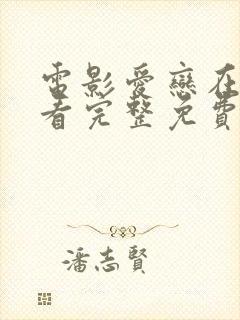 電影愛戀在
看完整免費
潘志賢